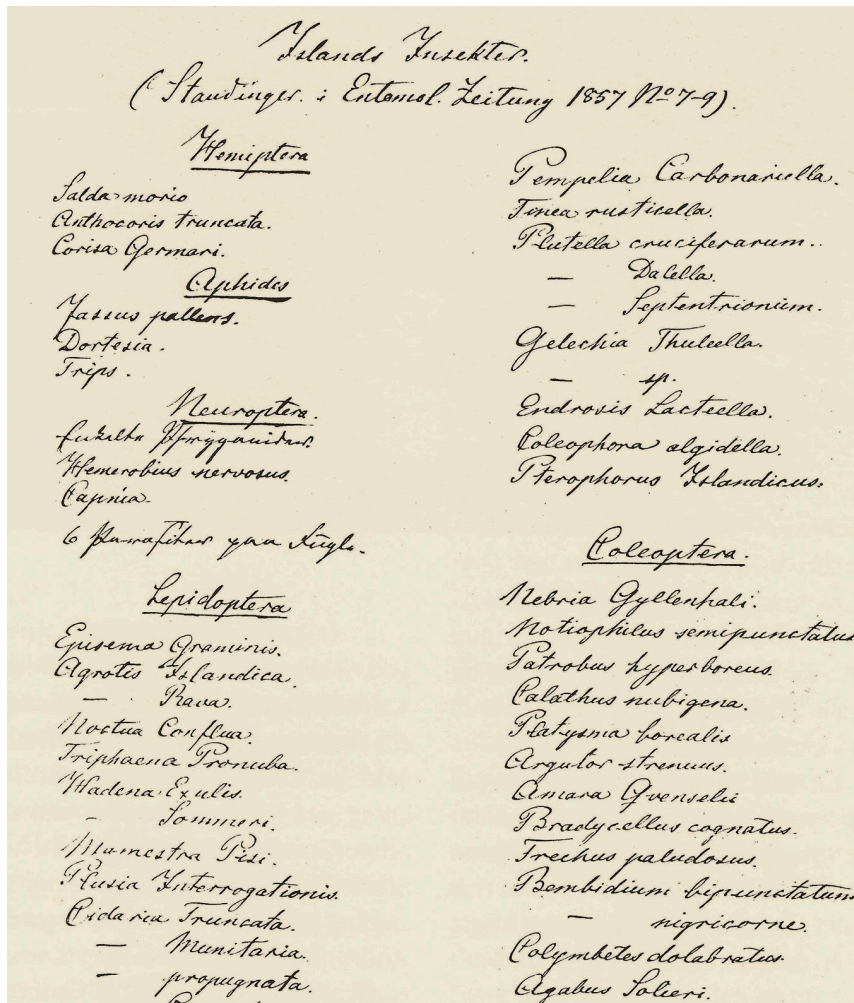 Islands Insekter.
(Staudinger. i Entomol. Zeitung 1857 No 7-9).
Hemiptera
Salda morio
Anthocoris truncata.
Corisa Germari.
Aphides
Jassus pallens.
Dortesia.
Trips.
Neuroptera.
Enkelte
Hemerobius nervosus.
Capnia.
6 paa Fugle.
Lepidoptera
Episema Graminis.
Agrotis Islandica.
— Rava.
Noctua Conflua.
Triphaena Pronuba.
Hadena Exulis.
- Sommeri.
Mamestra Pisi.
Plusia Interrogationis.
Cidaria Truncata.
— Munitaria.
— propugnata.
Pempelia Carbonariella.
Tinea rusticella.
Plutella cruciferarum.
— Dalella.
— Septentrionum.
Gelechia Thuleella.
— sp.
Endrosis Lacteella.
Coleophora algidella.
Pterophorus Islandicus.
Coleoptera.
Nebria Gyllenhali.
Notiophilus semipunctatus
Patrobus hyperboreus.
Calathus nubigena.
Platysma borealis
Argutor strenuus.
Amara Qvenselii
Bradycellus cognatus.
Trechus paludosus.
Bembidium bipunctatum
— nigricorne.
Colymbetes dolabratus.
Agabus Solieri.